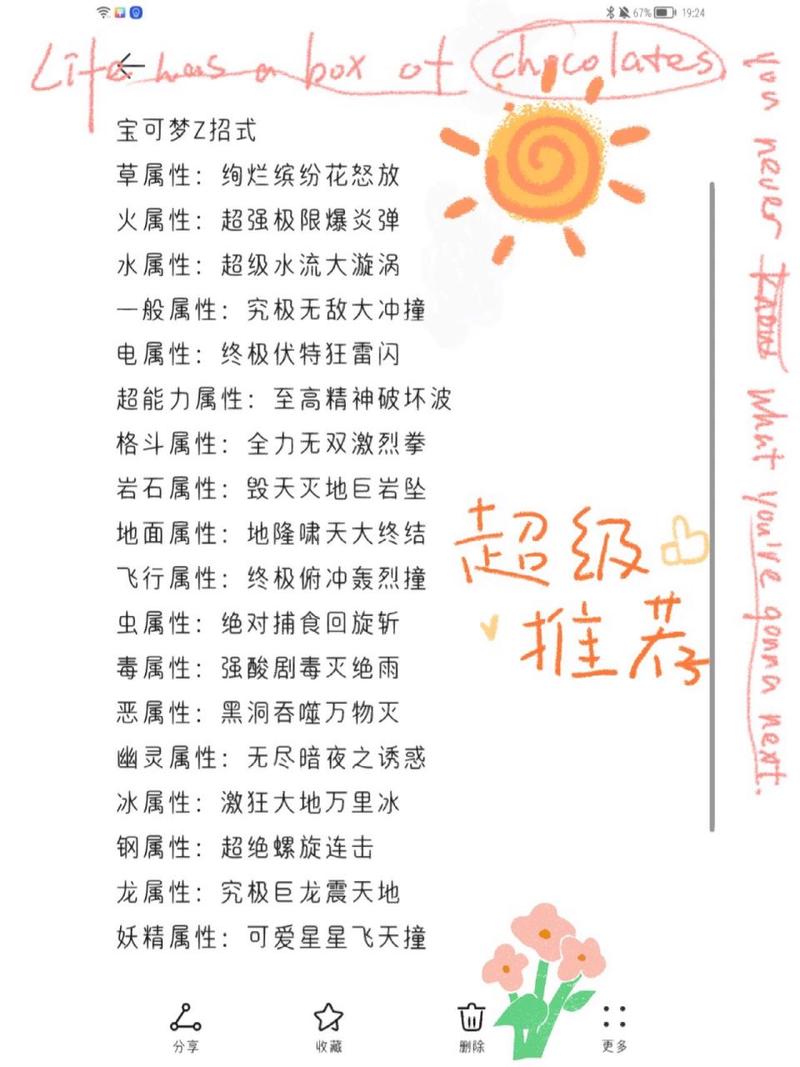 67% 19:24
Life was a box of chocolates
you never know what you're gonna next.
宝可梦Z招式
草属性：绚烂缤纷花怒放
火属性：超强极限爆炎弹
水属性：超级水流大漩涡
一般属性：究极无敌大冲撞
电属性：终极伏特狂雷闪
超能力属性：至高精神破坏波
格斗属性：全力无双激烈拳
岩石属性：毁天灭地巨岩坠
地面属性：地隆啸天大终结
飞行属性：终极俯冲轰烈撞
虫属性：绝对捕食回旋斩
毒属性：强酸剧毒灭绝雨
恶属性：黑洞吞噬万物灭
幽灵属性：无尽暗夜之诱惑
冰属性：激狂大地万里冰
钢属性：超绝螺旋连击
龙属性：究极巨龙震天地
妖精属性：可爱星星飞天撞
超级
推荐
分享 收藏 删除 更多